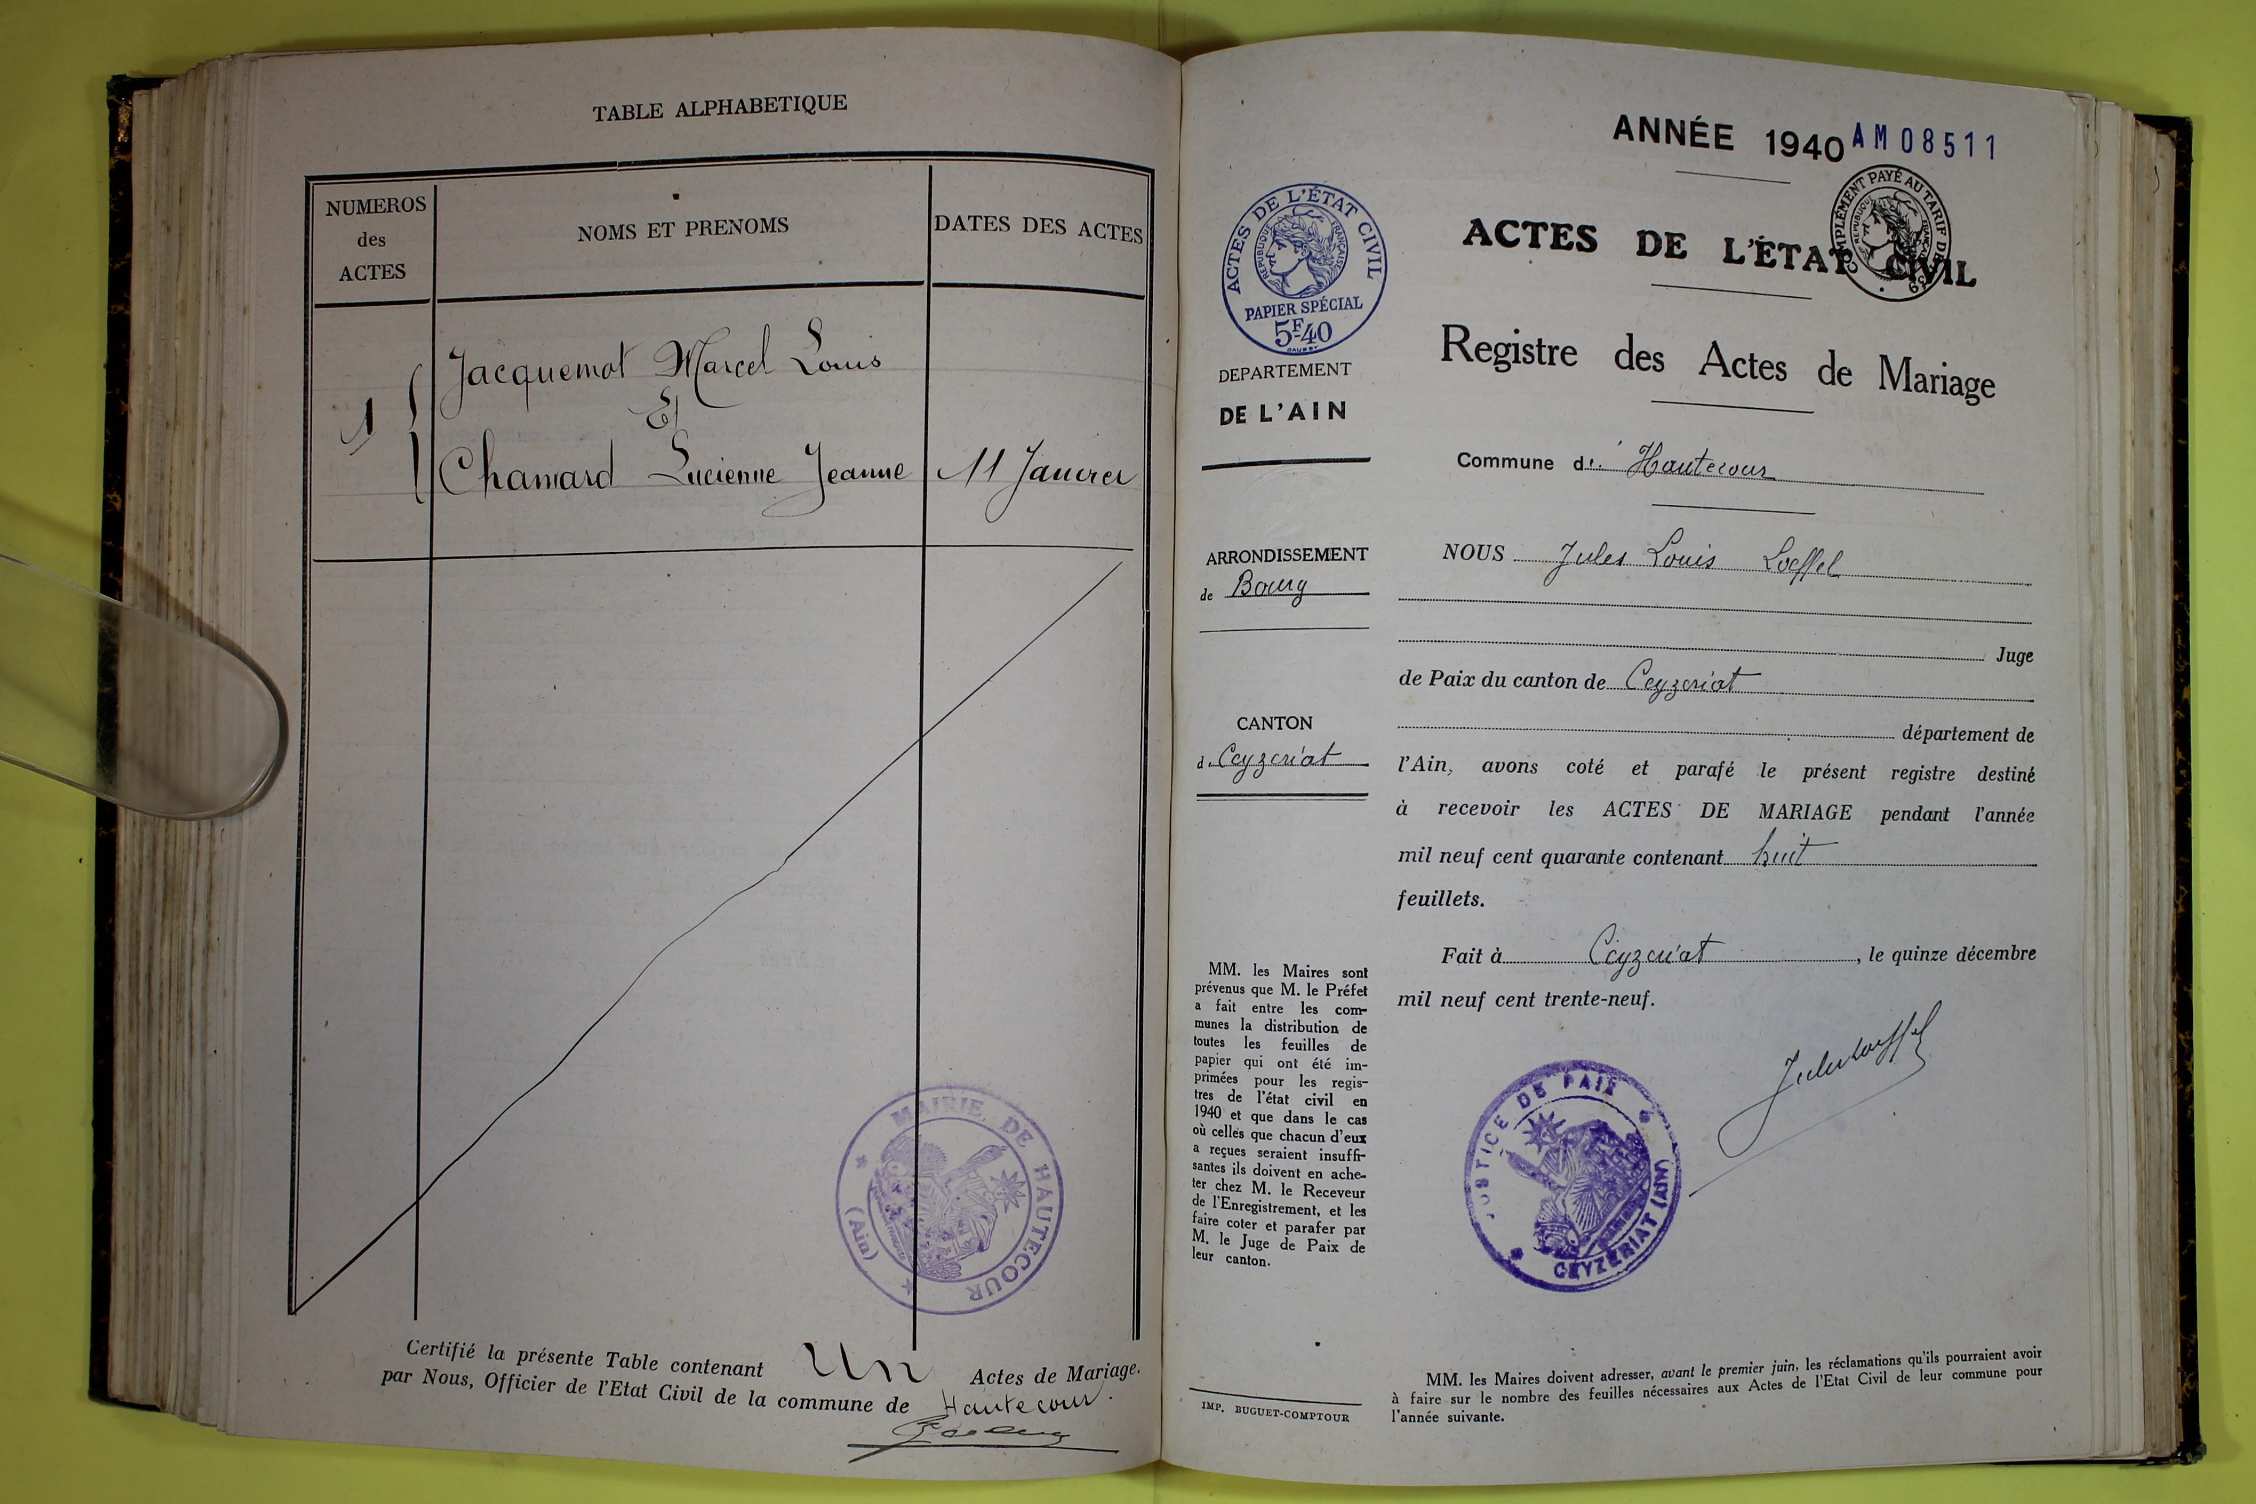 TABLE ALPHABETIQUE
NUMEROS
des
ACTES
NOMS ET PRENOMS
DATES DES ACTES
1
Jacquemot Marcel Louis
Et
Chanard Lucienne Jeanne
11 Janvier
MAIRIE DE HAUTECOUR
(Ain)
Certifié la présente Table contenant Un Actes de Mariage.
par Nous, Officier de l'Etat Civil de la commune de Hautecour.
ANNÉE 1940
AM08511
ACTES DE L'ÉTAT CIVIL
RÉPUBLIQUE FRANÇAISE
PAPIER SPÉCIAL
5F40
COMPLÉMENT PAYÉ AU TARIF DE
ACTES DE L'ÉTAT CIVIL
Registre des Actes de Mariage
DEPARTEMENT
DE L'AIN
Commune d' Hautecour
ARRONDISSEMENT
de Bourg
CANTON
d. Ceyzeriat
NOUS Jules Louis Loeffel
Juge
de Paix du canton de Ceyzeriat
département de
l'Ain, avons coté et parafé le présent registre destiné
à recevoir les ACTES DE MARIAGE pendant l'année
mil neuf cent quarante contenant huit
feuillets.
Fait à Ceyzeriat, le quinze décembre
mil neuf cent trente-neuf.
Jules Loeffel
JUSTICE DE PAIX
CEYZÉRIAT (AIN)
MM. les Maires sont
prévenus que M. le Préfet
a fait entre les com-
munes la distribution de
toutes les feuilles de
papier qui ont été im-
primées pour les regis-
tres de l'état civil en
1940 et que dans le cas
où celles que chacun d'eux
a reçues seraient insuffi-
santes ils doivent en ache-
ter chez M. le Receveur
de l'Enregistrement, et les
faire coter et parafer par
M. le Juge de Paix de
leur canton.
IMP. BUGUET-COMPTOUR
MM. les Maires doivent adresser, avant le premier juin, les réclamations qu'ils pourraient avoir
à faire sur le nombre des feuilles nécessaires aux Actes de l'Etat Civil de leur commune pour
l'année suivante.